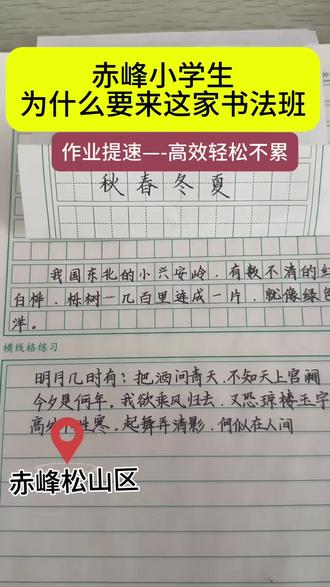 赤峰小学生
为什么要来这家书法班
作业提速—-高效轻松不累
秋春冬夏
我国东北的小兴安岭，有数不清的红
白桦、栎树一几百里连成一片，就像绿色
洋。
横线格练习
明月几时有？把酒问青天.不知天上宫阙
今夕是何年.我欲乘风归去.又恐琼楼玉宇
高处 胜寒.起舞弄清影.何似在人间
赤峰松山区